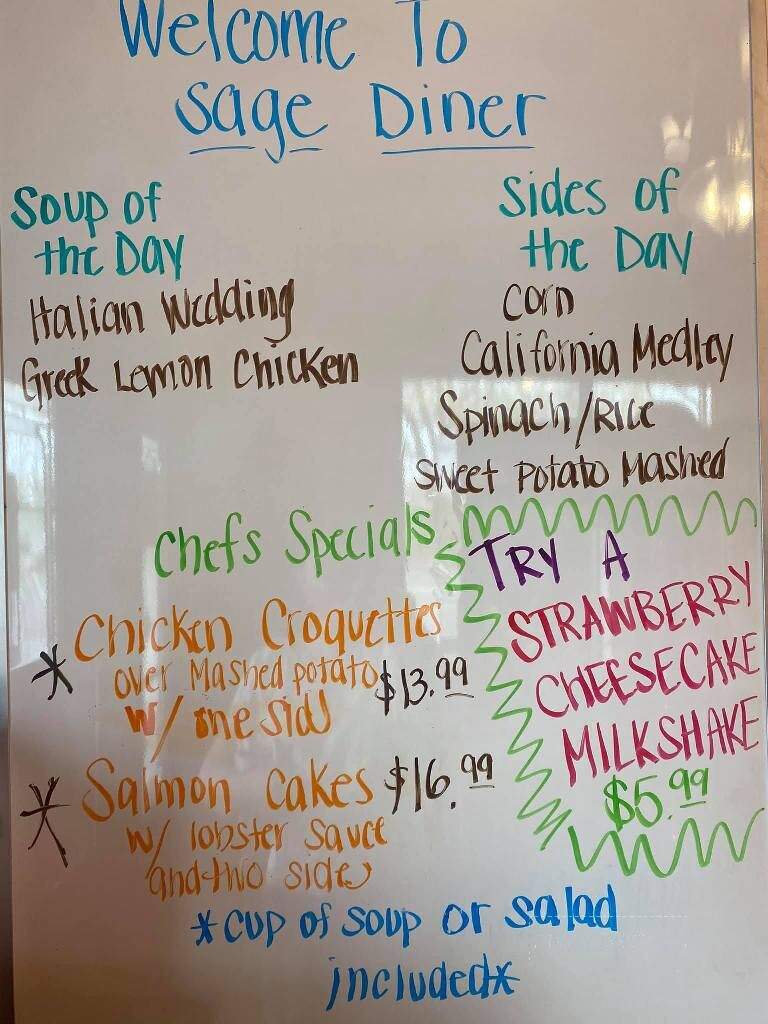 Welcome To
Sage Diner
Soup of
the Day
Italian Wedding
Greek Lemon Chicken
Sides of
the Day
Corn
California Medley
Spinach/Rice
Sweet Potato Mashed
Chefs Specials
* Chicken Croquettes
over Mashed potato $13.99
w/ one side
* Salmon Cakes $16.99
w/ lobster sauce
and two sides
TRY A
STRAWBERRY
CHEESECAKE
MILKSHAKE
$5.99
*cup of soup or salad
included*